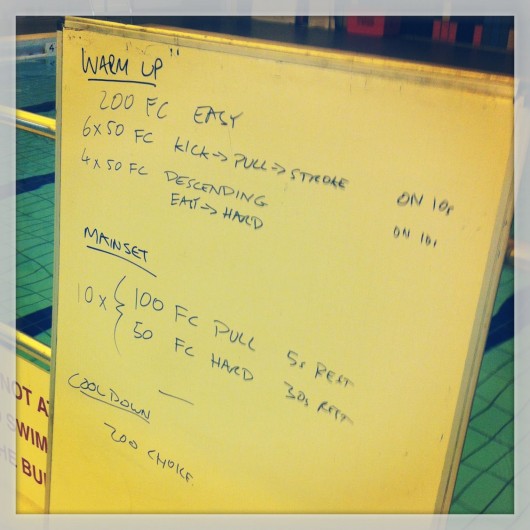 "WARM UP"
200 FC EASY
6x50 FC KICK→PULL→STROKE ON 10s
4x50 FC DESCENDING ON 10s
EASY→HARD
MAINSET
10x { 100 FC PULL 5s REST
50 FC HARD 30s REST
—
COOLDOWN
200 CHOICE
NOT
SWIM
THE BU
4